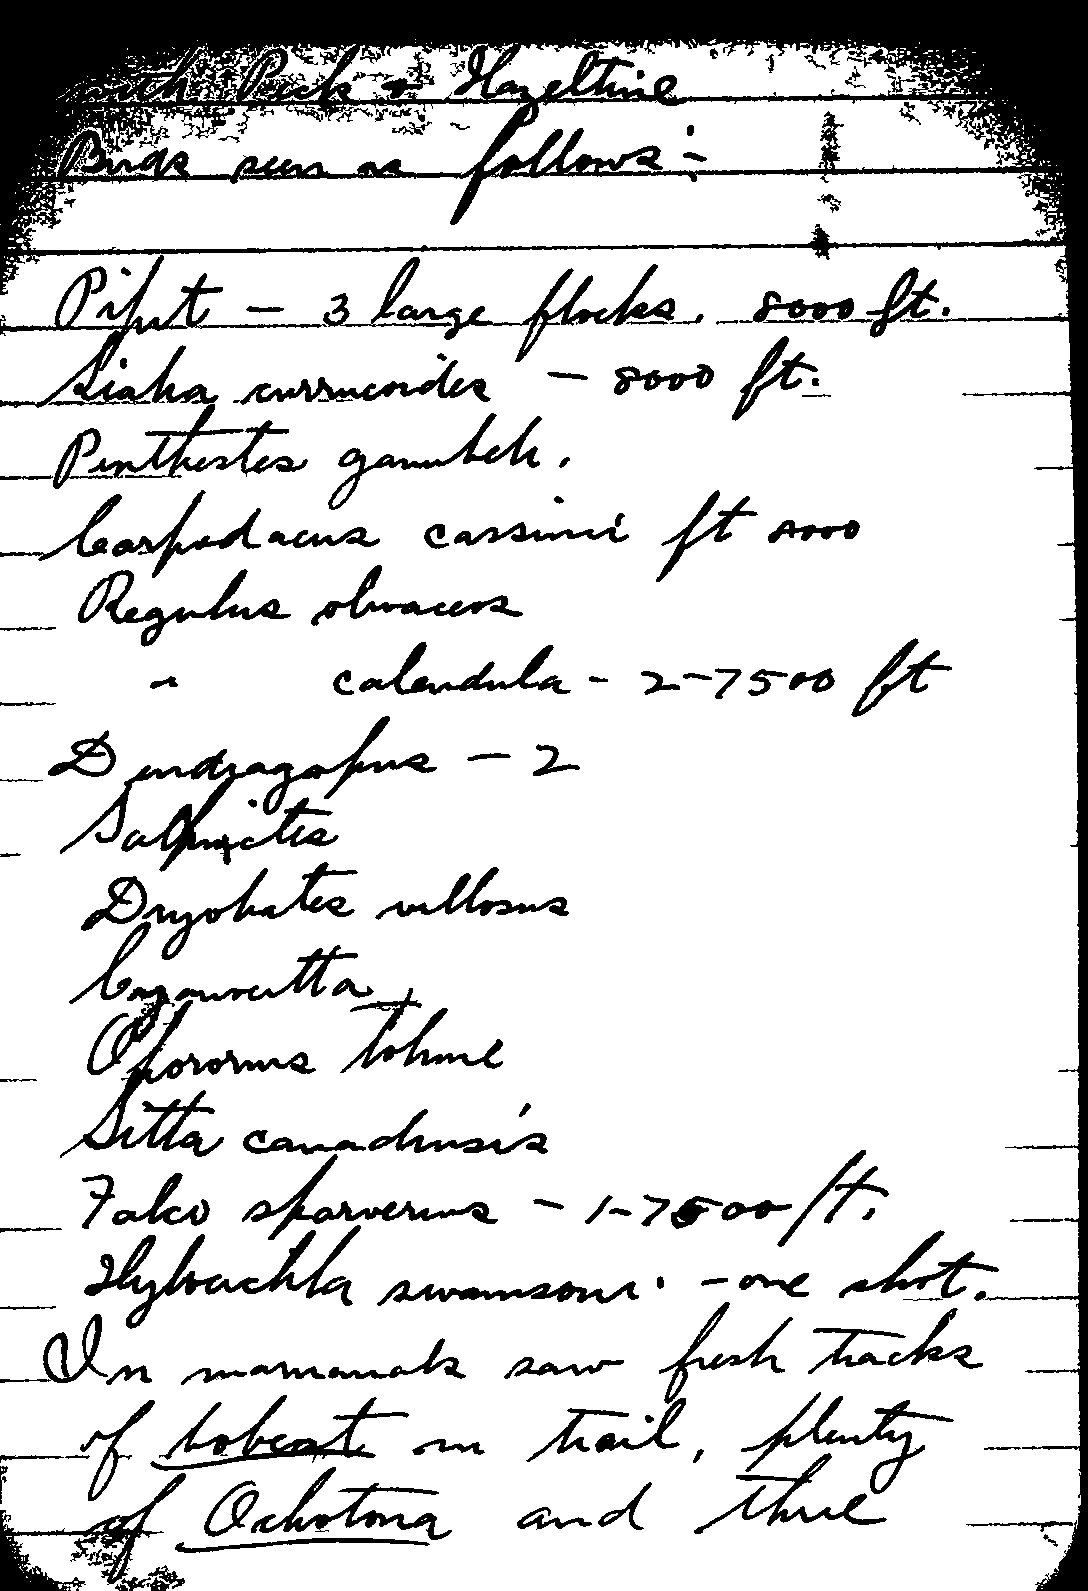 with Peck & Hazeltine
Birds seen as follows:-
Pipit — 3 large flocks. 8000 ft.
Sialia currucoides — 8000 ft.
Penthestes gambeli.
Carpodacus cassinii ft 8000
Regulus olivaceus
" calendula - 2-7500 ft
Dendragapus — 2
Salpinctes
Dryobates villosus
Cyanocitta
Oporornis tolmiei
Sitta canadensis
Falco sparverius — 1-7500 ft.
Hylocichla swainsoni - one shot.
In mammals saw fresh tracks
of bobcat on trail, plenty
of Ochotona and three